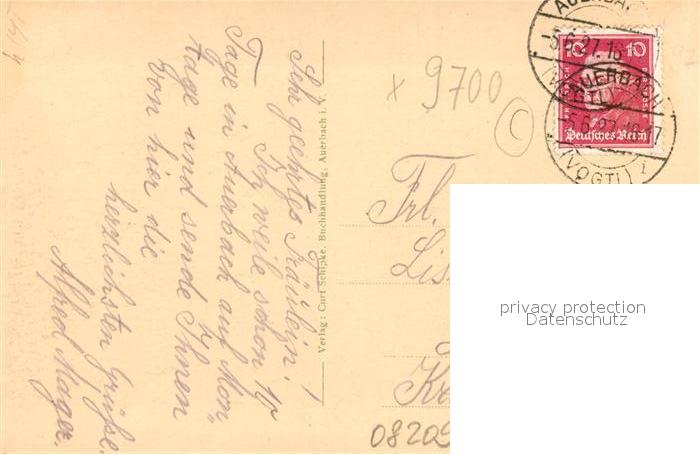 Sehr geehrtes Fräulein!
Ich weile schon 14
Tage in Auerbach auf Mon-
tage und sende Ihnen
von hier die
herzlichsten Grüße.
Alfred Mager.
Verlag: Curt Schipke, Buchhandlung, Auerbach i. V.
x 9700
C
AUERBACH
-5.6.27.16
(VOGTL)
10 10
Deutsches Reich
AUERBACH
(VOGTL)
Frl.
Lis
privacy protection
Datenschutz
08209